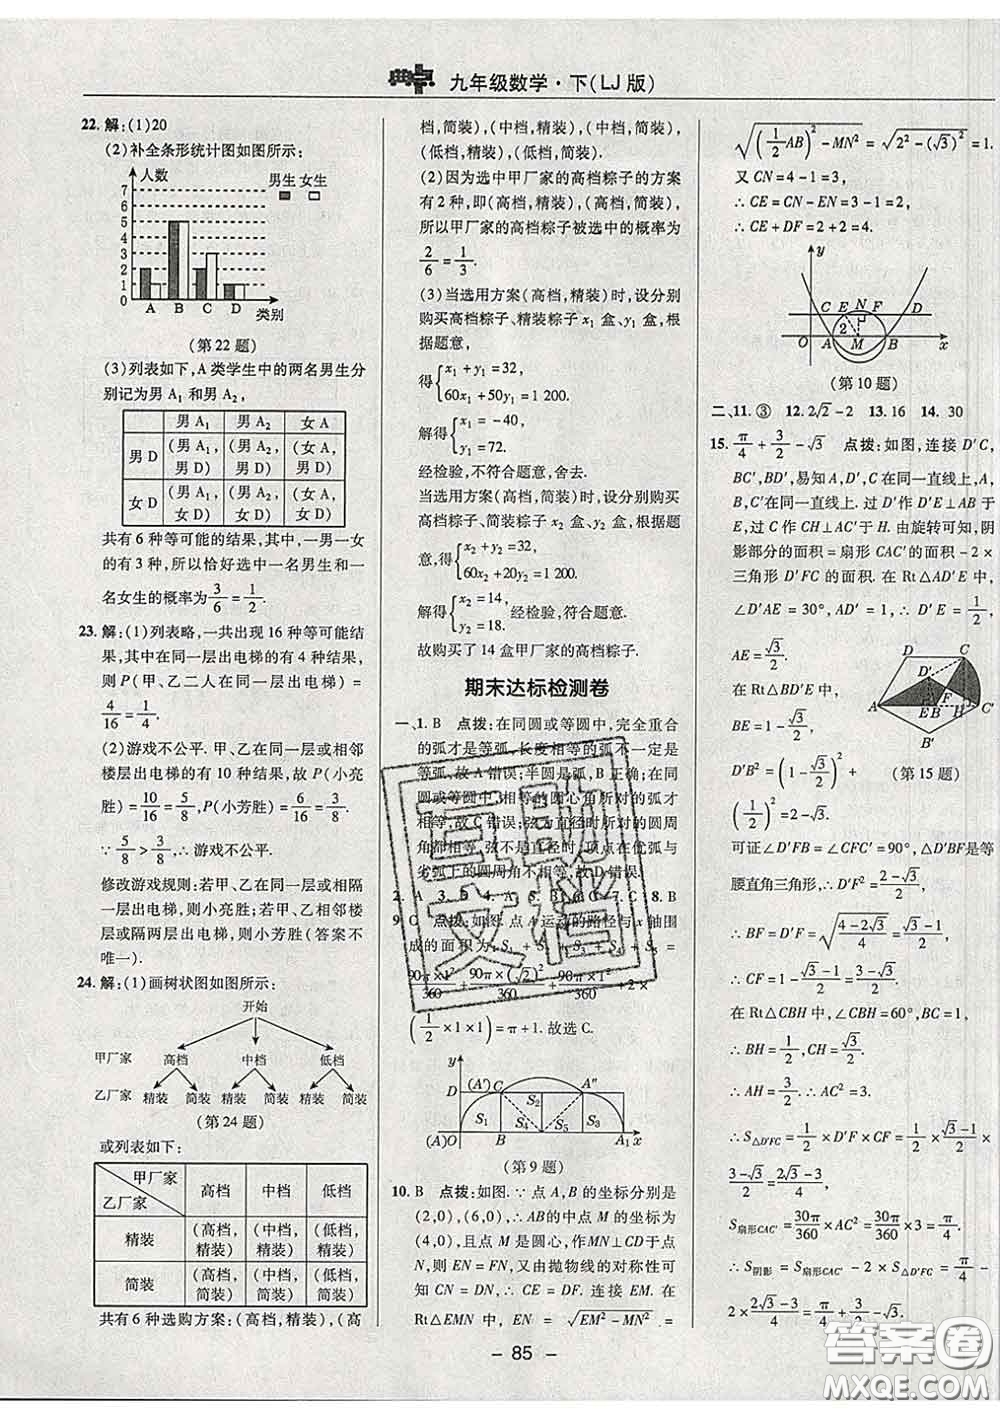 典中点 九年级数学·下(LJ版)
22. 解:(1)20
(2)补全条形统计图如图所示:
人数
男生 女生
7
6
5
4
3
2
1
0
A B C D 类别
(第22题)
(3)列表如下,A类学生中的两名男生分
别记为男A₁和男A₂,
男A₁ 男A₂ 女A
男D (男A₁,男D) (男A₂,男D) (女A,男D)
女D (男A₁,女D) (男A₂,女D) (女A,女D)
共有6种等可能的结果,其中,一男一女
的有3种,所以恰好选中一名男生和
一名女生的概率为3/6=1/2.
23. 解:(1)列表略,一共出现16种等可能结
果,其中在同一层出电梯的有4种结果,
则P(甲、乙二人在同一层出电梯)=
4/16=1/4.
(2)游戏不公平. 甲、乙在同一层或相邻
楼层出电梯的有10种结果,故P(小亮
胜)=10/16=5/8,P(小芳胜)=6/16=3/8,
∵5/8>3/8,∴游戏不公平.
修改游戏规则:若甲、乙在同一层或相隔
一层出电梯,则小亮胜;若甲、乙相邻楼
层或隔两层出电梯,则小芳胜(答案不
唯一).
24. 解:(1)画树状图如图所示:
开始
甲厂家 高档 中档 低档
乙厂家 精装 简装 精装 简装 精装 简装
(第24题)
或列表如下:
甲厂家 乙厂家 高档 中档 低档
精装 (高档,精装) (中档,精装) (低档,精装)
简装 (高档,简装) (中档,简装) (低档,简装)
共有6种选购方案:(高档,精装),(高
档,简装),(中档,精装),(中档,简装),
(低档,精装),(低档,简装).
(2)因为选中甲厂家的高档粽子的方案
有2种,即(高档,精装),(高档,简装),
所以甲厂家的高档粽子被选中的概率为
2/6=1/3.
(3)当选用方案(高档,精装)时,设分别
购买高档粽子、精装粽子x₁盒、y₁盒,根
据题意,
得{x₁+y₁=32,
60x₁+50y₁=1 200.
解得{x₁=-40,
y₁=72.
经检验,不符合题意,舍去.
当选用方案(高档,简装)时,设分别购买
高档粽子、简装粽子x₂盒、y₂盒,根据题
意,得{x₂+y₂=32,
60x₂+20y₂=1 200.
解得{x₂=14,
y₂=18. 经检验,符合题意.
故购买了14盒甲厂家的高档粽子.
期末达标检测卷
一、1. B 点拨:在同圆或等圆中,完全重合
的弧才是等弧,长度相等的弧不一定是
等弧,故A错误;半圆是弧,B正确;在同
圆或等圆中,相等的圆心角所对的弧才
相等,故C错误;弦为直径时所对的圆周
角都相等,弦不是直径时,顶点在优弧与
劣弧上的圆周角不相等,故D错误.
7. C 8. B
9. C 点拨:如图,点A运动的路径与x轴围
成的面积为:S₁+S₂+S₃+S₄+S₅=
90π×1²/360+90π×(√2)²/360+90π×1²/360+2×
(1/2×1×1)=π+1.故选C.
y
D (A′) C A″
S₁ S₂ S₄ S₅ S₃
(A)O B A₁ x
(第9题)
10. B 点拨:如图.∵点A,B的坐标分别是
(2,0),(6,0),∴AB的中点M的坐标为
(4,0),且点M是圆心,作MN⊥CD于点
N,则EN=FN,又由抛物线的对称性可
知CN=DN,∴CE=DF. 连接EM. 在
Rt△EMN中,EN=√(EM²-MN²)=
√((1/2AB)²-MN²)=√(2²-(√3)²)=1.
又CN=4-1=3,
∴CE=CN-EN=3-1=2,
∴CE+DF=2+2=4.
y
C E N F D
2
O A M B x
(第10题)
二、11. ③ 12. 2√2-2 13. 16 14. 30
15. π/4+3/2-√3 点拨:如图,连接D′C,
BC′,BD′,易知A,D′,C在同一直线上,A,
B,C′在同一直线上. 过D′作D′E⊥AB于
E,过C作CH⊥AC′于H. 由旋转可知,阴
影部分的面积=扇形CAC′的面积-2×
三角形D′FC的面积. 在Rt△AD′E中,
∠D′AE=30°,AD′=1,∴D′E=1/2,
AE=√3/2.
在Rt△BD′E中,
BE=1-√3/2,
D′B²=(1-√3/2)²+
(1/2)²=2-√3.
D C
D′ F
A E B H C′
B′
(第15题)
可证∠D′FB=∠CFC′=90°,△D′BF是等
腰直角三角形,∴D′F²=(2-√3)/2,
∴BF=D′F=√((4-2√3)/4)=(√3-1)/2,
∴CF=1-(√3-1)/2=(3-√3)/2.
在Rt△CBH中,∠CBH=60°,BC=1,
∴BH=1/2,CH=√3/2.
∴AH=3/2,∴AC²=3.
∴S△D′FC=1/2×D′F×CF=1/2×(√3-1)/2×
(3-√3)/2=(2√3-3)/4,
S扇形CAC′=30π/360×AC²=30π/360×3=π/4.
∴S阴影=S扇形CAC′-2×S△D′FC=π/4-
2×(2√3-3)/4=π/4+3/2-√3.
- 85 -
互助文档
答案圈
MXQE.COM